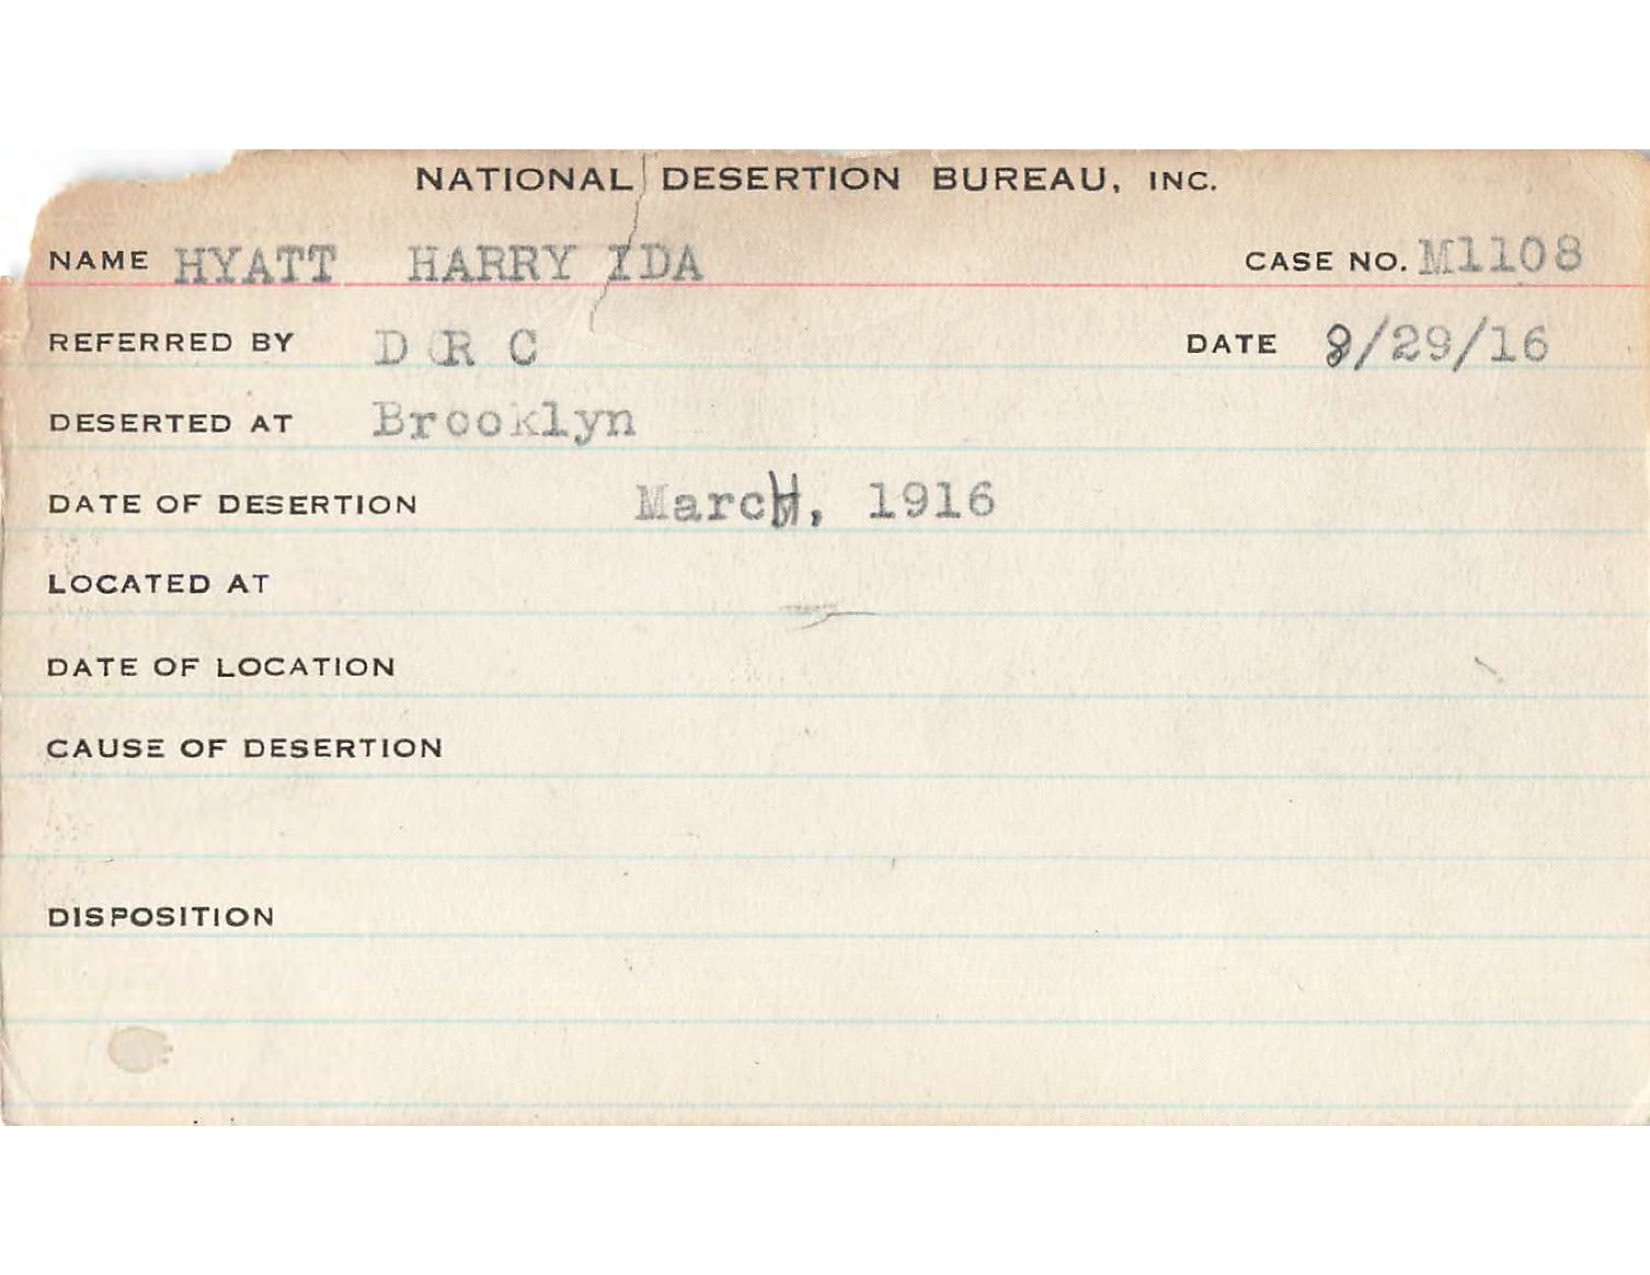 NATIONAL DESERTION BUREAU, INC.
NAME HYATT HARRY IDA CASE NO. M1108
REFERRED BY D R C DATE 8/29/16
DESERTED AT Brooklyn
DATE OF DESERTION March, 1916
LOCATED AT
DATE OF LOCATION
CAUSE OF DESERTION
DISPOSITION